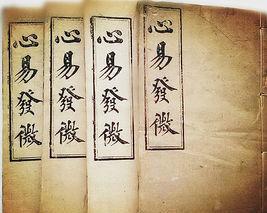 心易發微
心易發微
心易發微
心易發微